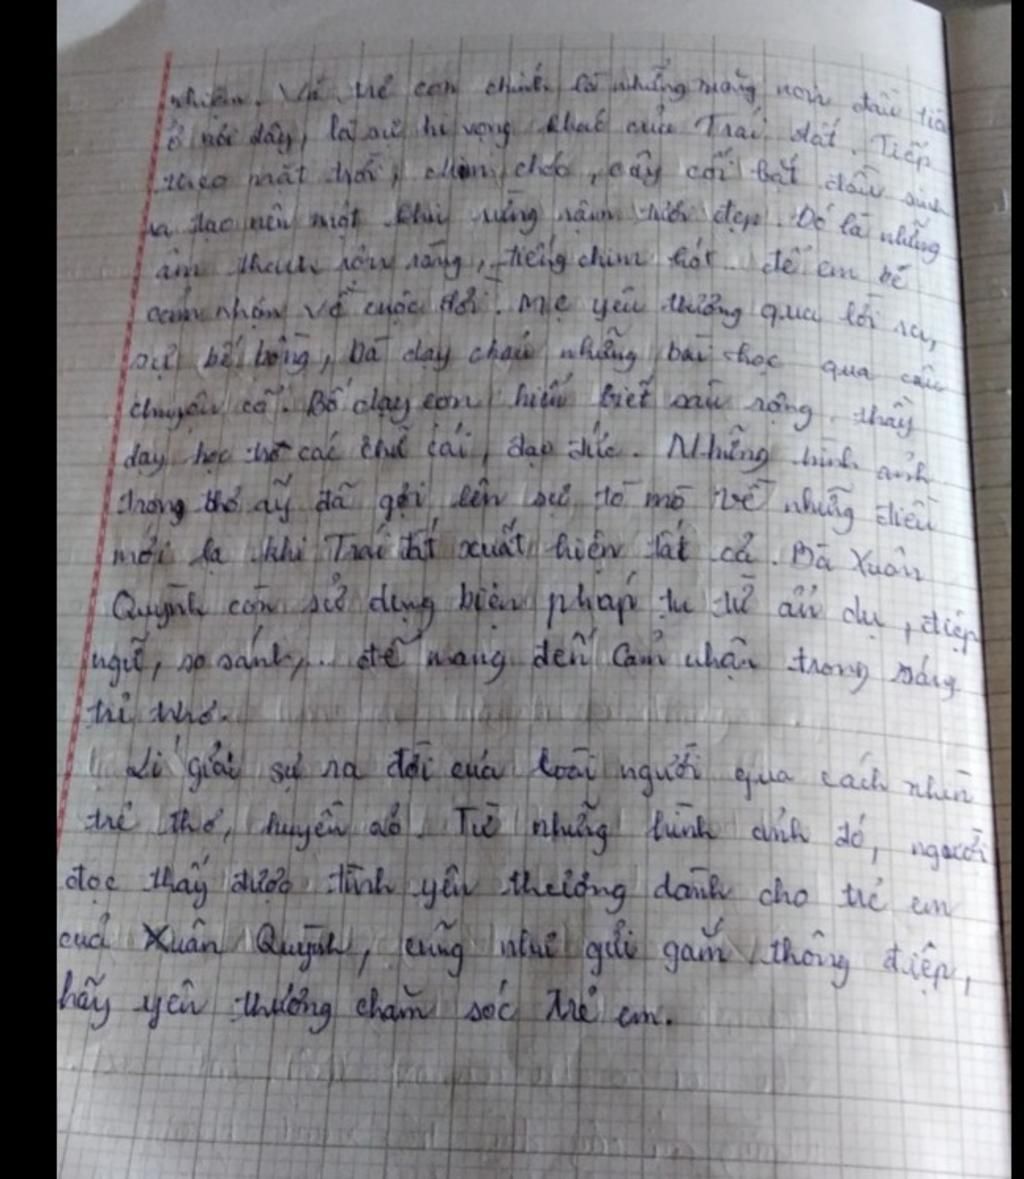 nhiên. Và trẻ con chính là những mầng non đầu tiên
ở nơi đây, là sự hi vọng khác của Trái đất. Tiếp
theo mặt trời, chim chóc, cây cối bắt đầu sinh
ra tạo nên một khu rừng rậm tươi đẹp. Đó là những
âm thanh rộn ràng, tiếng chim hót.. để em bé
cảm nhận về cuộc đời. Mẹ yêu thương qua lời ru,
sự bế bồng, bà dạy cháu những bài học qua câu
chuyện cổ. Bố dạy con hiểu biết sâu rộng, thầy
dạy học trò các chữ cái, đạo đức. Những hình ảnh
trong thơ ấy đã gợi lên sự tò mò về những điều
mới lạ khi Trái đất xuất hiện tất cả. Bà Xuân
Quỳnh còn sử dụng biện pháp tu từ ẩn dụ, điệp
ngữ, so sánh,.. để mang đến cảm nhận trong sáng
trẻ thơ.
Lí giải sự ra đời của loài người qua cách nhìn
trẻ thơ, huyền ảo. Từ những hình ảnh đó, người
đọc thấy được tình yêu thương dành cho trẻ em
của Xuân Quỳnh, cũng như gửi gắm thông điệp,
hãy yêu thương chăm sóc trẻ em.